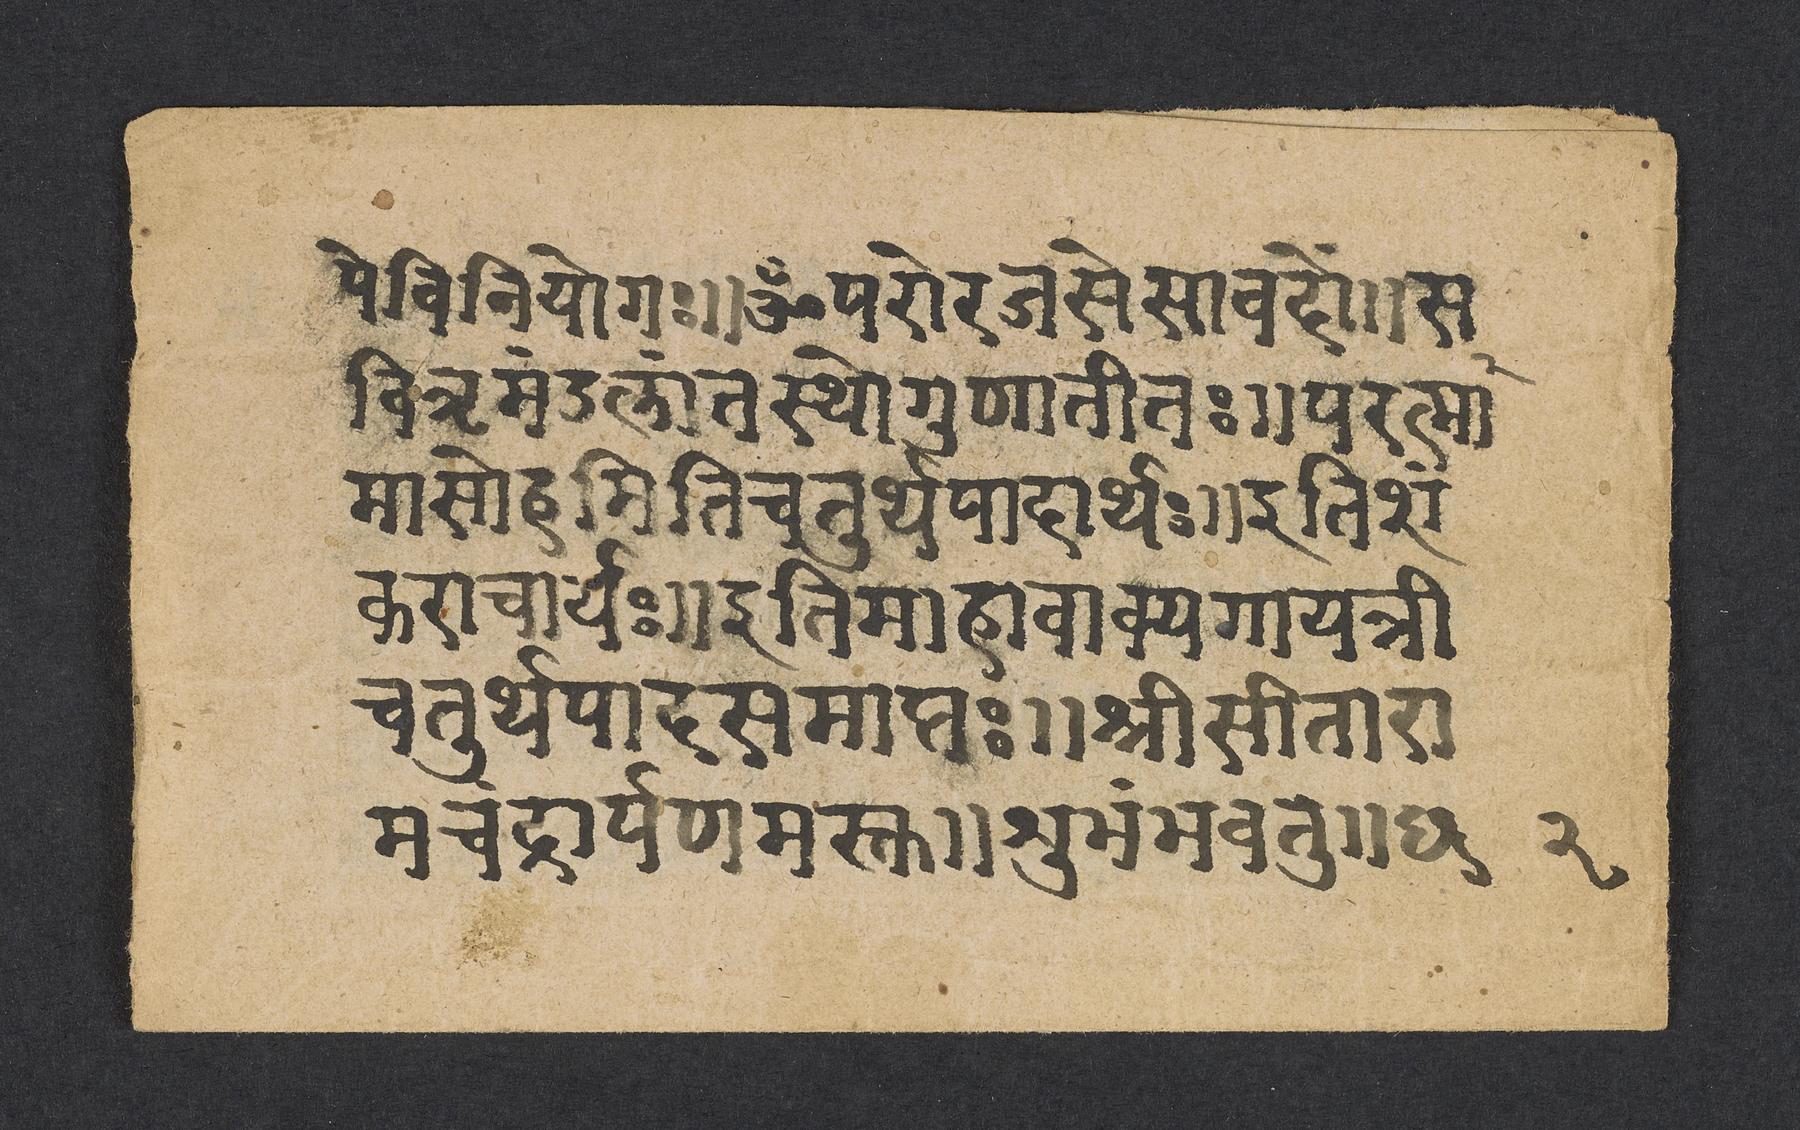 पेविनियोगः॥ॐपरोरजसेसावदों॥स
वितृमंडलांतस्थोगुणातीतः॥परत्मा
मासोहमितिचतुर्थपादार्थः॥इतिशं
कराचार्यः॥इतिमाहावाक्यगायत्री
चतुर्थपादसमाप्तः॥श्रीसीतारा
मचंद्रार्पणमस्तु॥शुभंभवतु॥छ २